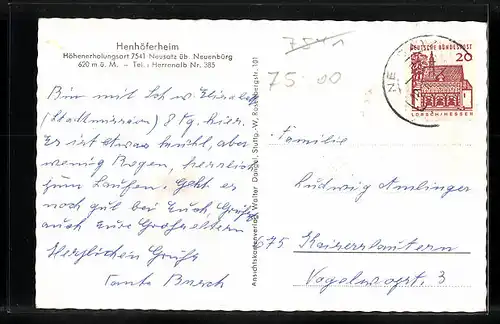 Henhöferheim
Höhenerholungsort 7541 Neusatz üb. Neuenbürg
620 m ü. M. – Tel.: Herrenalb Nr. 385
Bin mit Schw. Elisabeth
(Stadtmission) 8 Tg. hier.
Es ist etwas kühl, aber
wenig Regen, herrlich
zum Laufen. Geht es
noch gut bei Euch, Grüße
auch Eure Großeltern
Herzlichen Gruß
Tante Busch
Ansichtskartenverlag Walter Dangel, Stuttg.-W, Rosenbergstr. 101
7541
75.00
DEUTSCHE BUNDESPOST
20
LORSCH/HESSEN
NE
Familie
Ludwig Amlinger
675 Kaiserslautern
Vogelwoogstr. 3